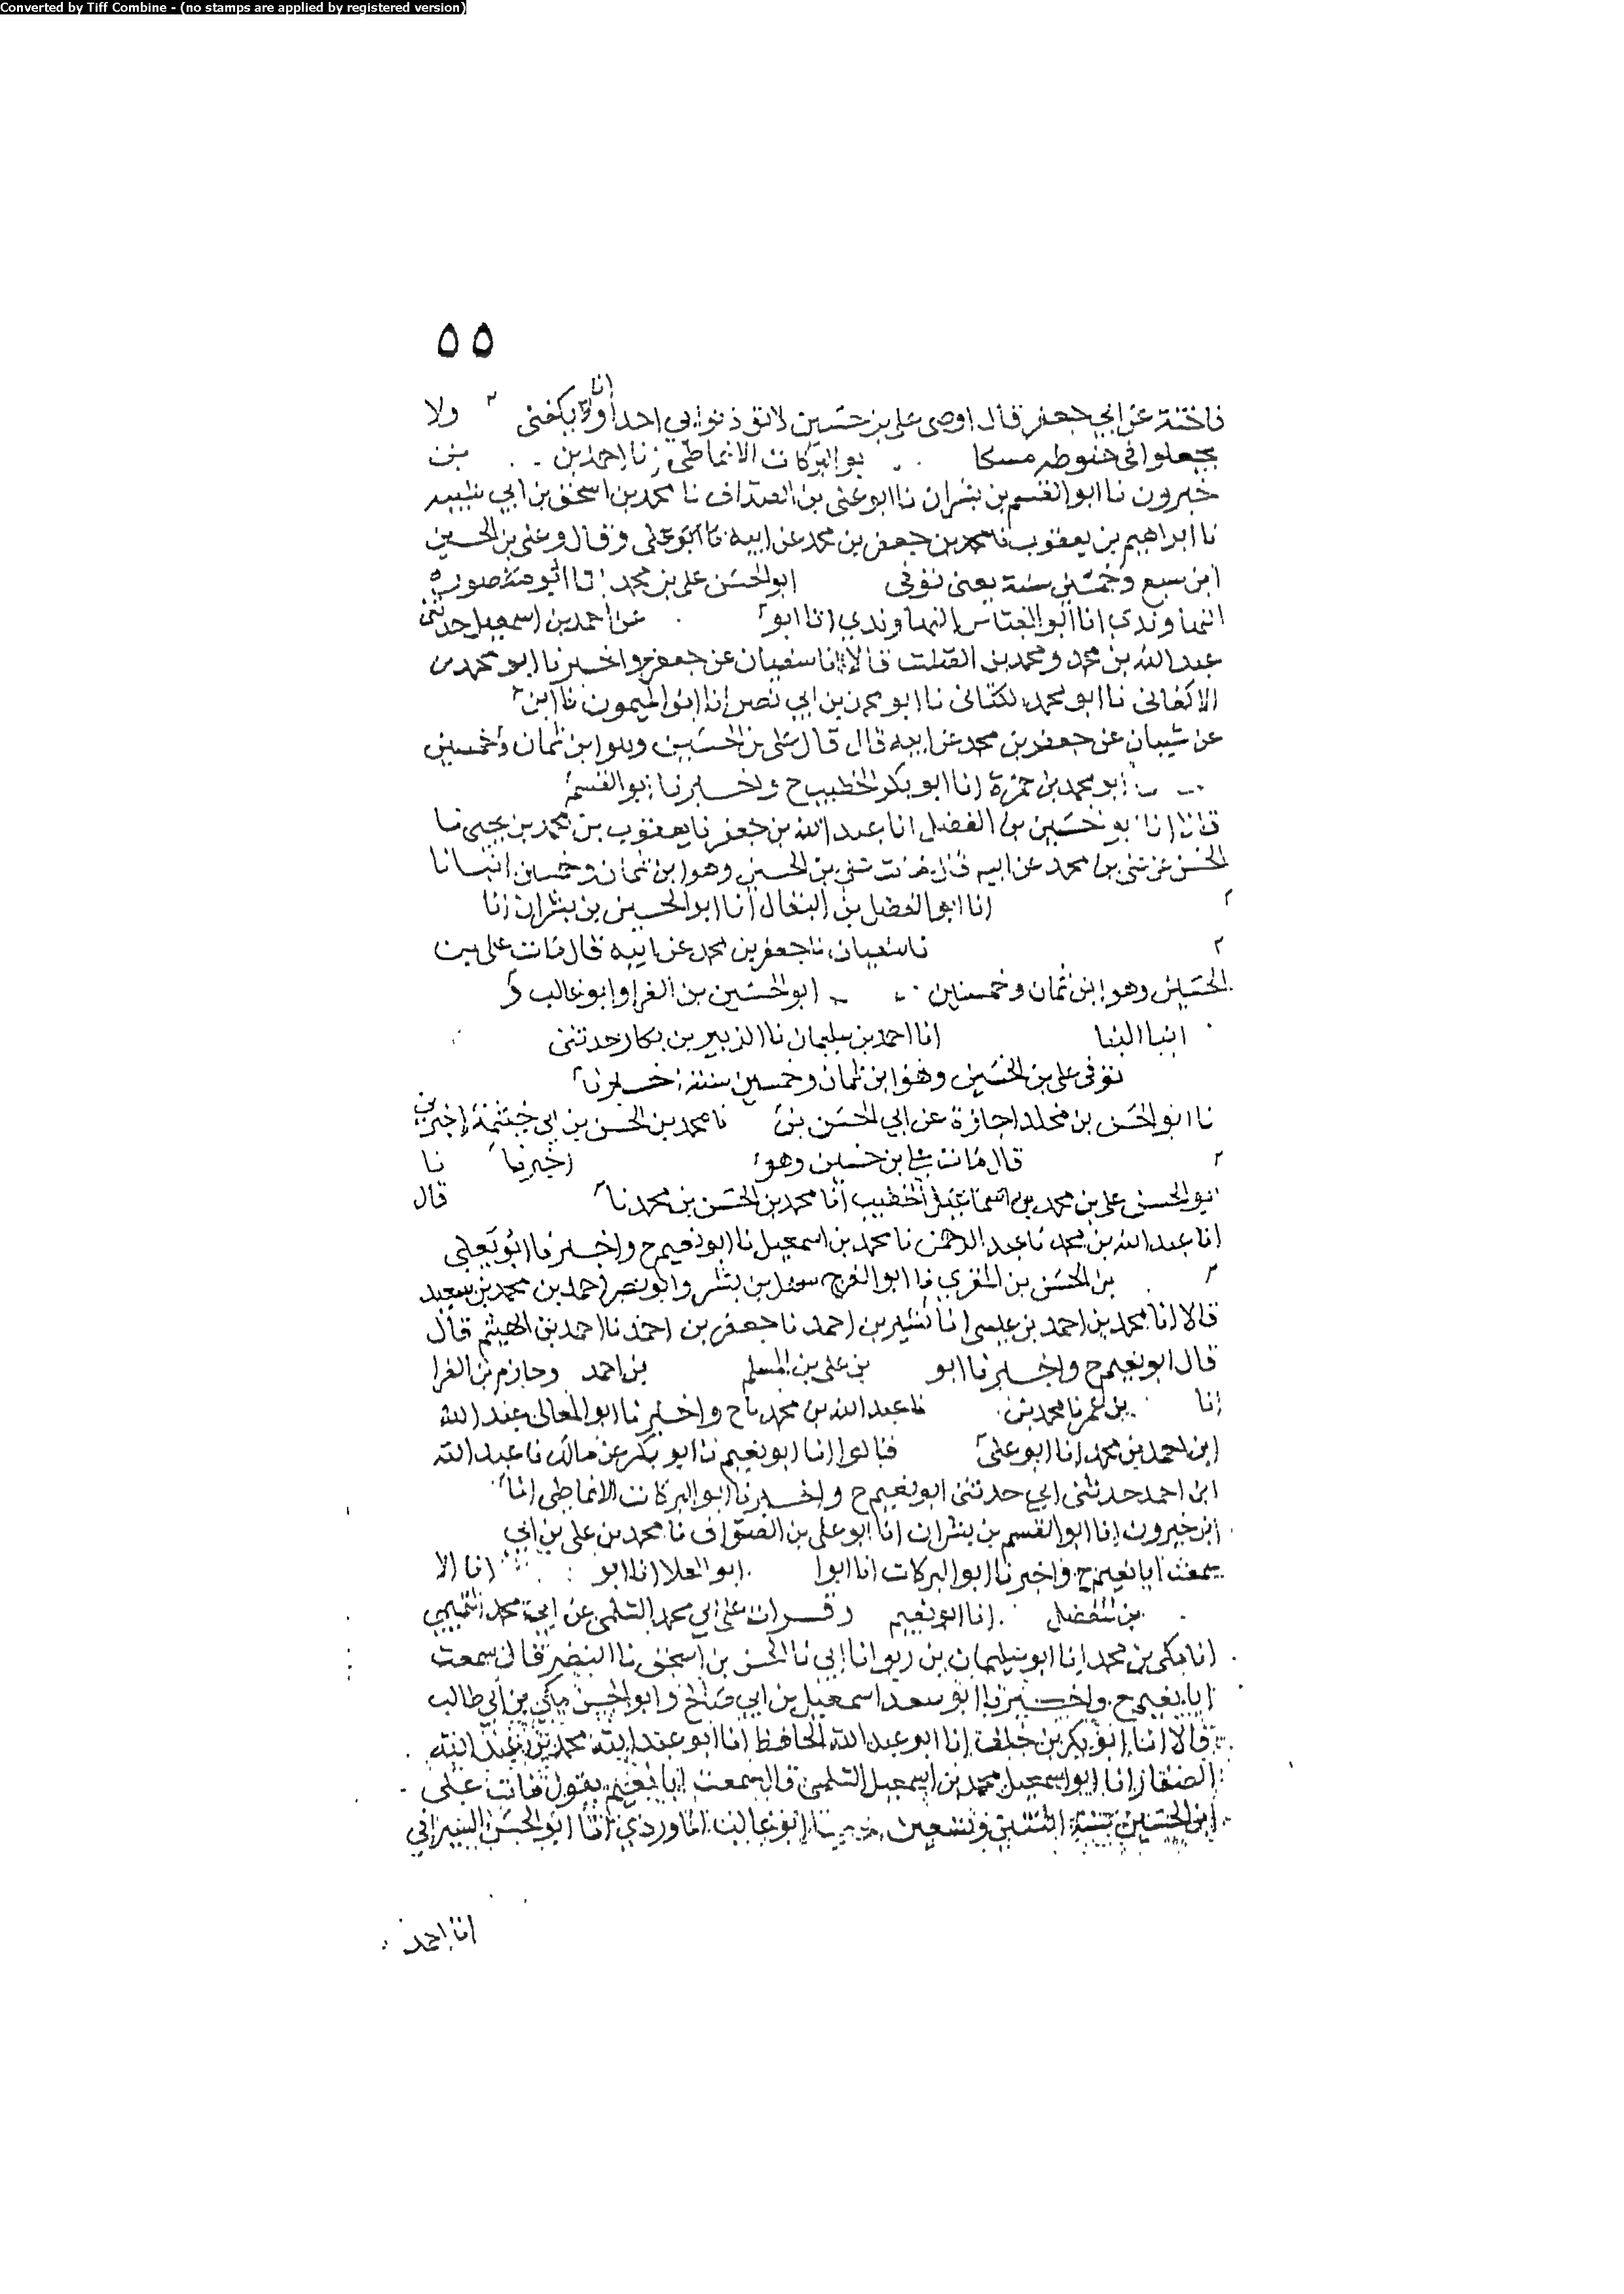 Converted by Tiff Combine - (no stamps are applied by registered version)
٥٥
انا
عن ابي جعفر قال اوصى علي بن حسين لا تؤذنوا بي احدا وان يكفنى ولا
يجعلوا في حنوطه مسكا بو البركات الانماطي نا احمد بن بن
خيرون نا ابو القسم بن بشران نا ابو علي بن الصواف نا محمد بن اسحق بن ابي شيبه
نا ابراهيم بن يعقوب نا محمد بن جعفر بن محمد عن ابيه نا ابو علي وقال وعلي بن الحسين
ابن سبع وخمسين سنة يعنى توفى ابو الحسن علي بن محمد نا ابو منصور
النهاوندي انا ابو العباس النهاوندي انا ابو عن احمد بن اسمعيل حدثني
عبد الله بن محمد ومحمد بن الصلت قالا نا سفيان عن جعفر واخبرنا ابو محمد بن
الاكفاني نا ابو محمد الكتاني نا ابو محمد بن ابي نصر انا ابو الميمون نا ابن
عن شيبان عن جعفر بن محمد عن ابيه قال قال علي بن الحسين وهو ابن ثمان وخمسين
ابو محمد بن حمزة انا ابو بكر الخطيب ح واخبرنا ابو القسم
انا ابو حسين بن الفضل انا عبد الله بن جعفر نا يعقوب بن محمد بن يحيى نا
بن محمد عن ابيه قال مات علي بن الحسين وهو ابن ثمان وخمسين انبانا
انا ابو الفضل بن البقال انا ابو الحسين بن بشران انا
نا سفيان نا جعفر بن محمد عن ابيه قال مات علي بن
الحسين وهو ابن ثمان وخمسين ابو الحسين بن الفرا وابو غالب و
ابنا البنا انا احمد بن سليمان نا الزبير بن بكار حدثني
توفى علي بن الحسين وهو ابن ثمان وخمسين سنة اخبرنا
نا ابو الحسن بن مخلد اجازة عن ابي الحسن بن نا محمد بن الحسن بن ابي خيثمة
قال مات علي بن حسين وهو اخبرنا نا
ابو الحسن علي بن محمد بن اسماعيل الخطيب انا محمد بن الحسن بن محمد نا قال
انا عبد الله بن محمد نا عبد الرحمن نا محمد بن اسمعيل نا ابو نعيم ح واخبرنا ابو يعلى
بن الحسن بن المقري نا ابو الفرج سهل بن بشر وابو نصر احمد بن محمد بن سعيد
قالا انا محمد بن احمد بن عيسى انا منير بن احمد نا جعفر بن احمد نا احمد بن الهيثم قال
قال ابو نعيم ح واخبرنا ابو بن علي بن المسلم بن احمد وحازم بن الفرا
انا بن عمر نا محمد بن نا عبد الله بن محمد نا ح واخبرنا ابو المعالي عبد الله
ابن احمد بن محمد انا ابو علي قالوا انا ابو نعيم نا ابو بكر عن مالك نا عبد الله
ابن احمد حدثني ابي حدثني ابو نعيم ح واخبرنا ابو البركات الانماطي انا
ابن خيرون انا ابو القسم بن بشران انا ابو علي بن الصواف نا محمد بن علي بن ابي
سمعت ابا نعيم ح واخبرنا ابو البركات انا ابو ابو العلا انا ابو انا الا
بن المفضل انا ابو نعيم وقرات على ابي محمد السلمي عن ابي محمد التميمي
انا مكي بن محمد انا ابو سليمان بن زبر انا ابي نا الحسن بن اسحق نا النضر قال سمعت
ابا نعيم ح واخبرنا ابو سعد اسمعيل بن ابي صالح وابو الحسن مكي بن ابي طالب
قالا انا ابو بكر بن خلف انا ابو عبد الله الحافظ انا ابو عبد الله محمد بن عبد الله
الصفار انا ابو اسمعيل محمد بن اسمعيل السلمي قال سمعت ابا نعيم يقول مات علي
ابن الحسين سنة اثنتين وتسعين ابو غالب الماوردي انا ابو الحسن السيرافي
انا احمد